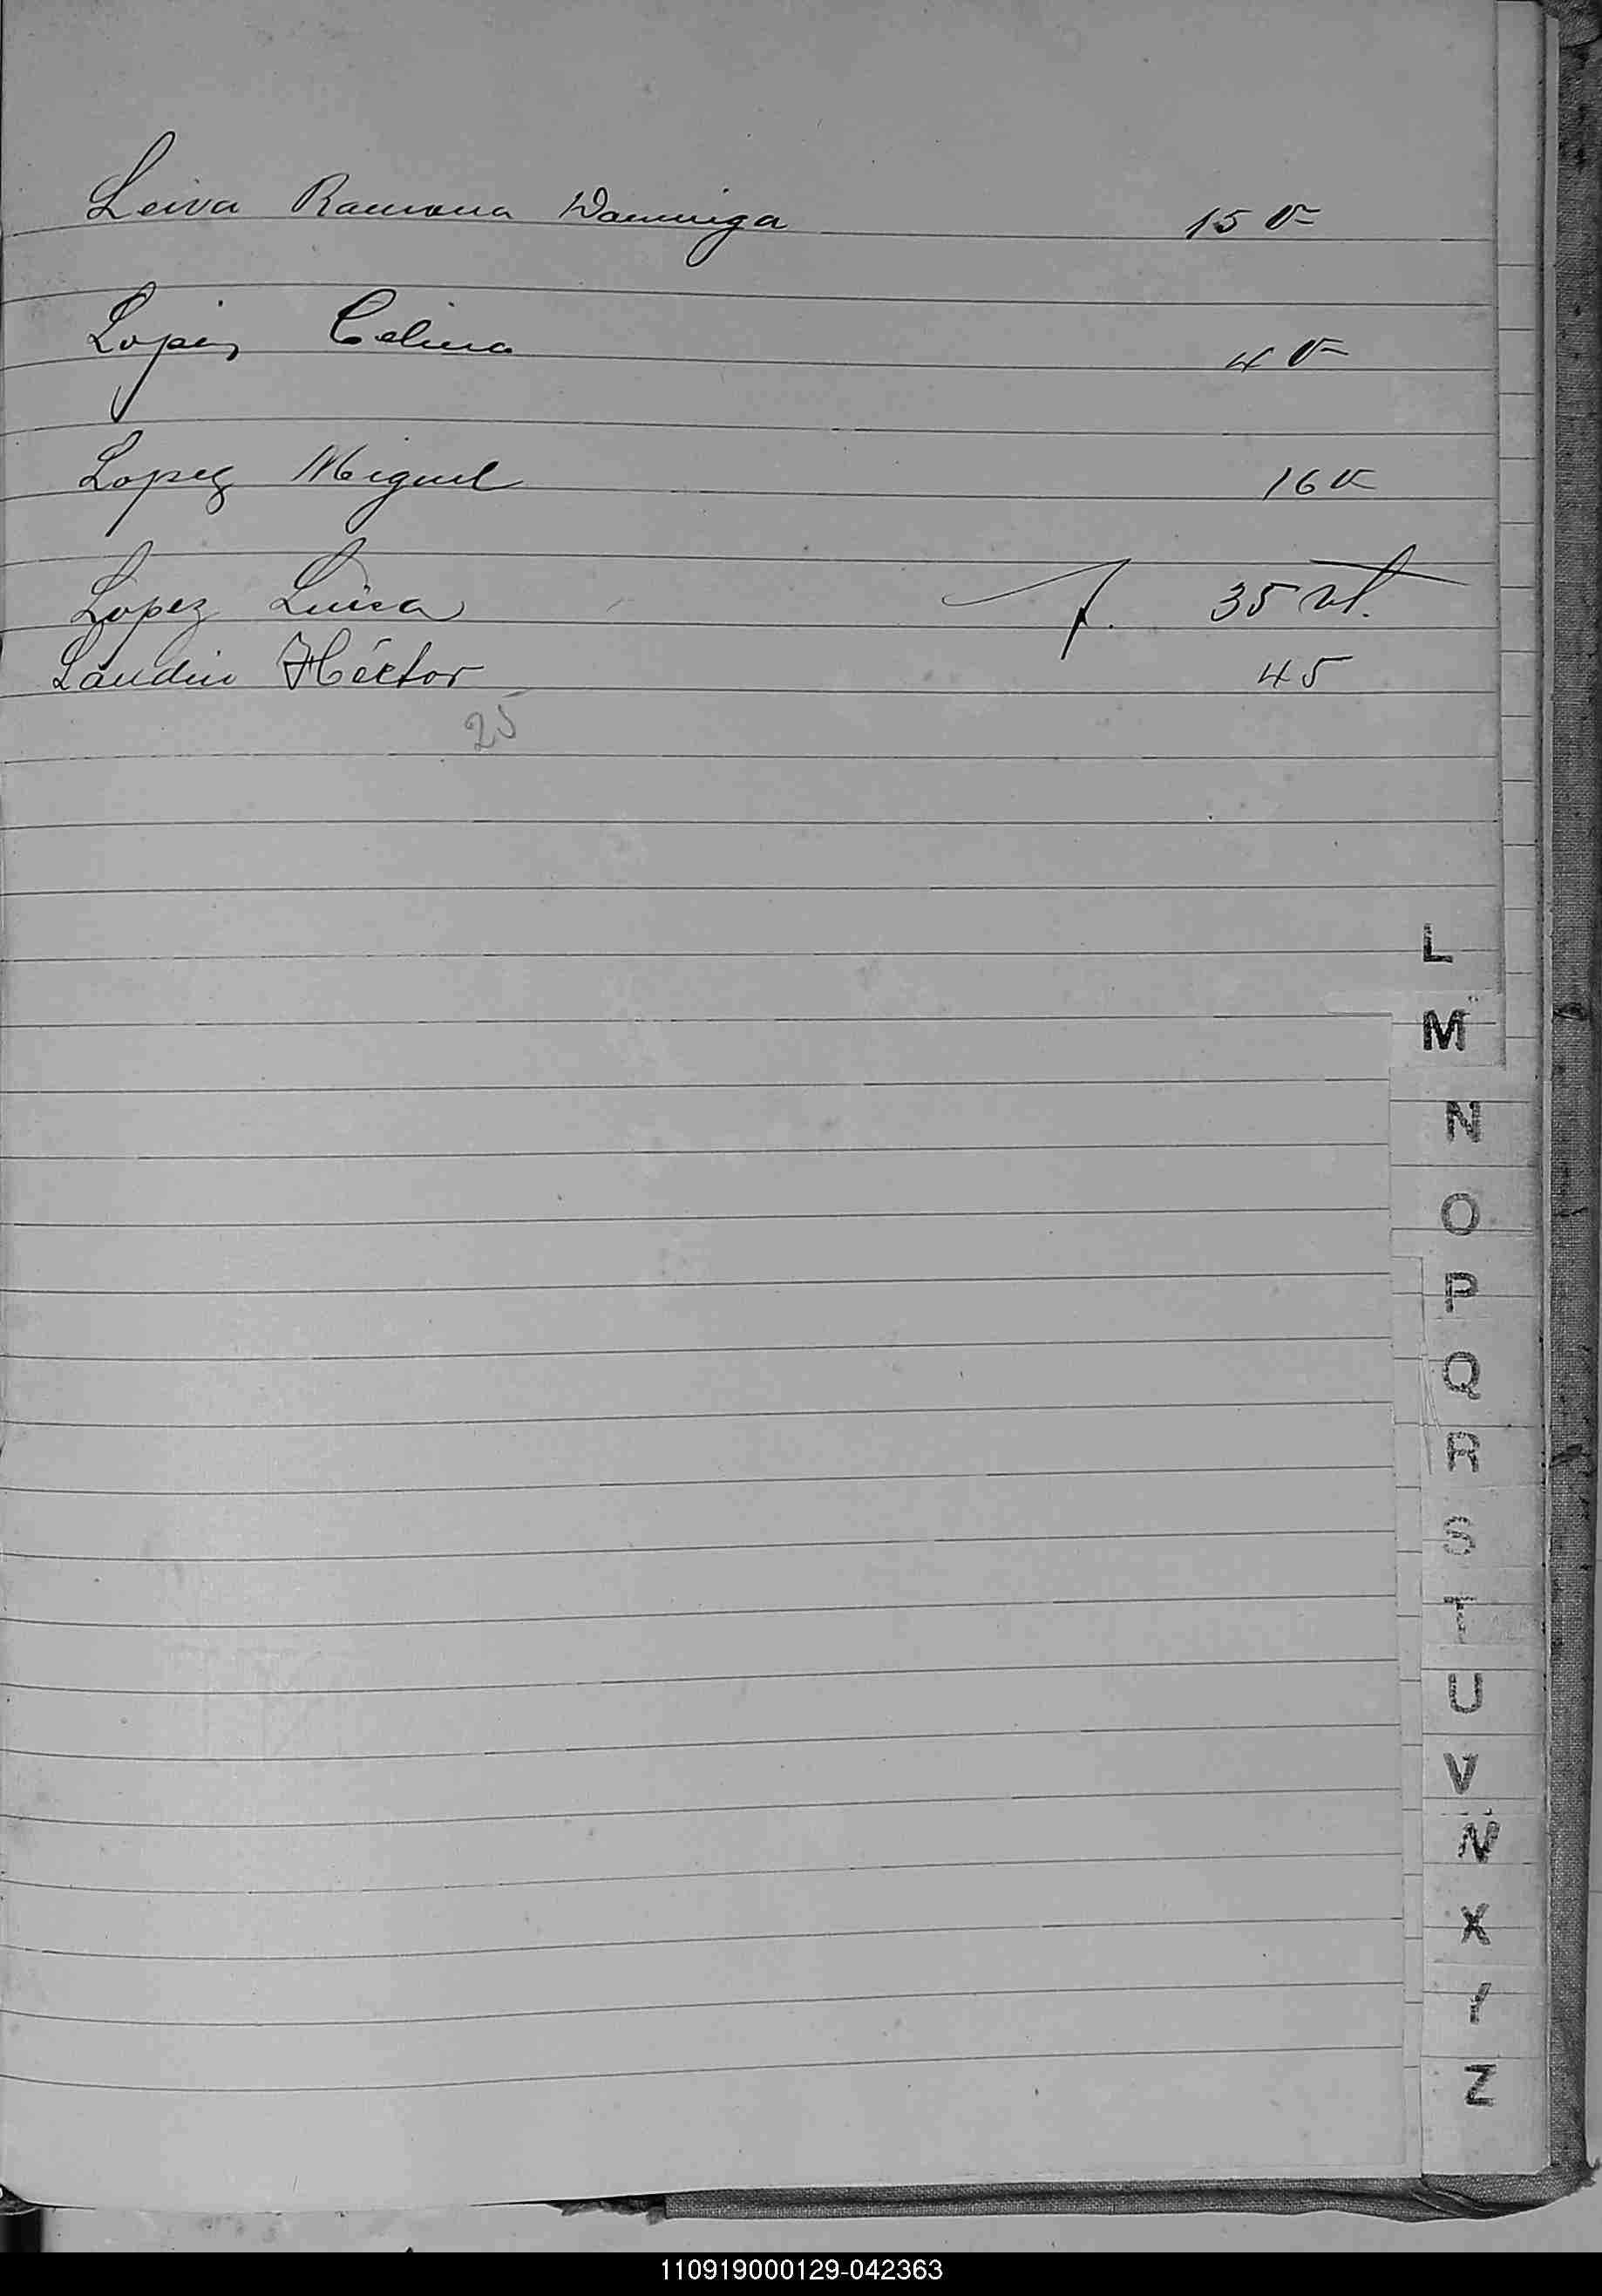 Leiva Ramona Dominga 15 v
Lopez Celina 4 v
Lopez Miguel 16 v
Lopez Luisa f. 35 vt.
Landin Héctor 45
25
L
M
N
O
P
Q
R
S
T
U
V
W
X
Y
Z
110919000129-042363